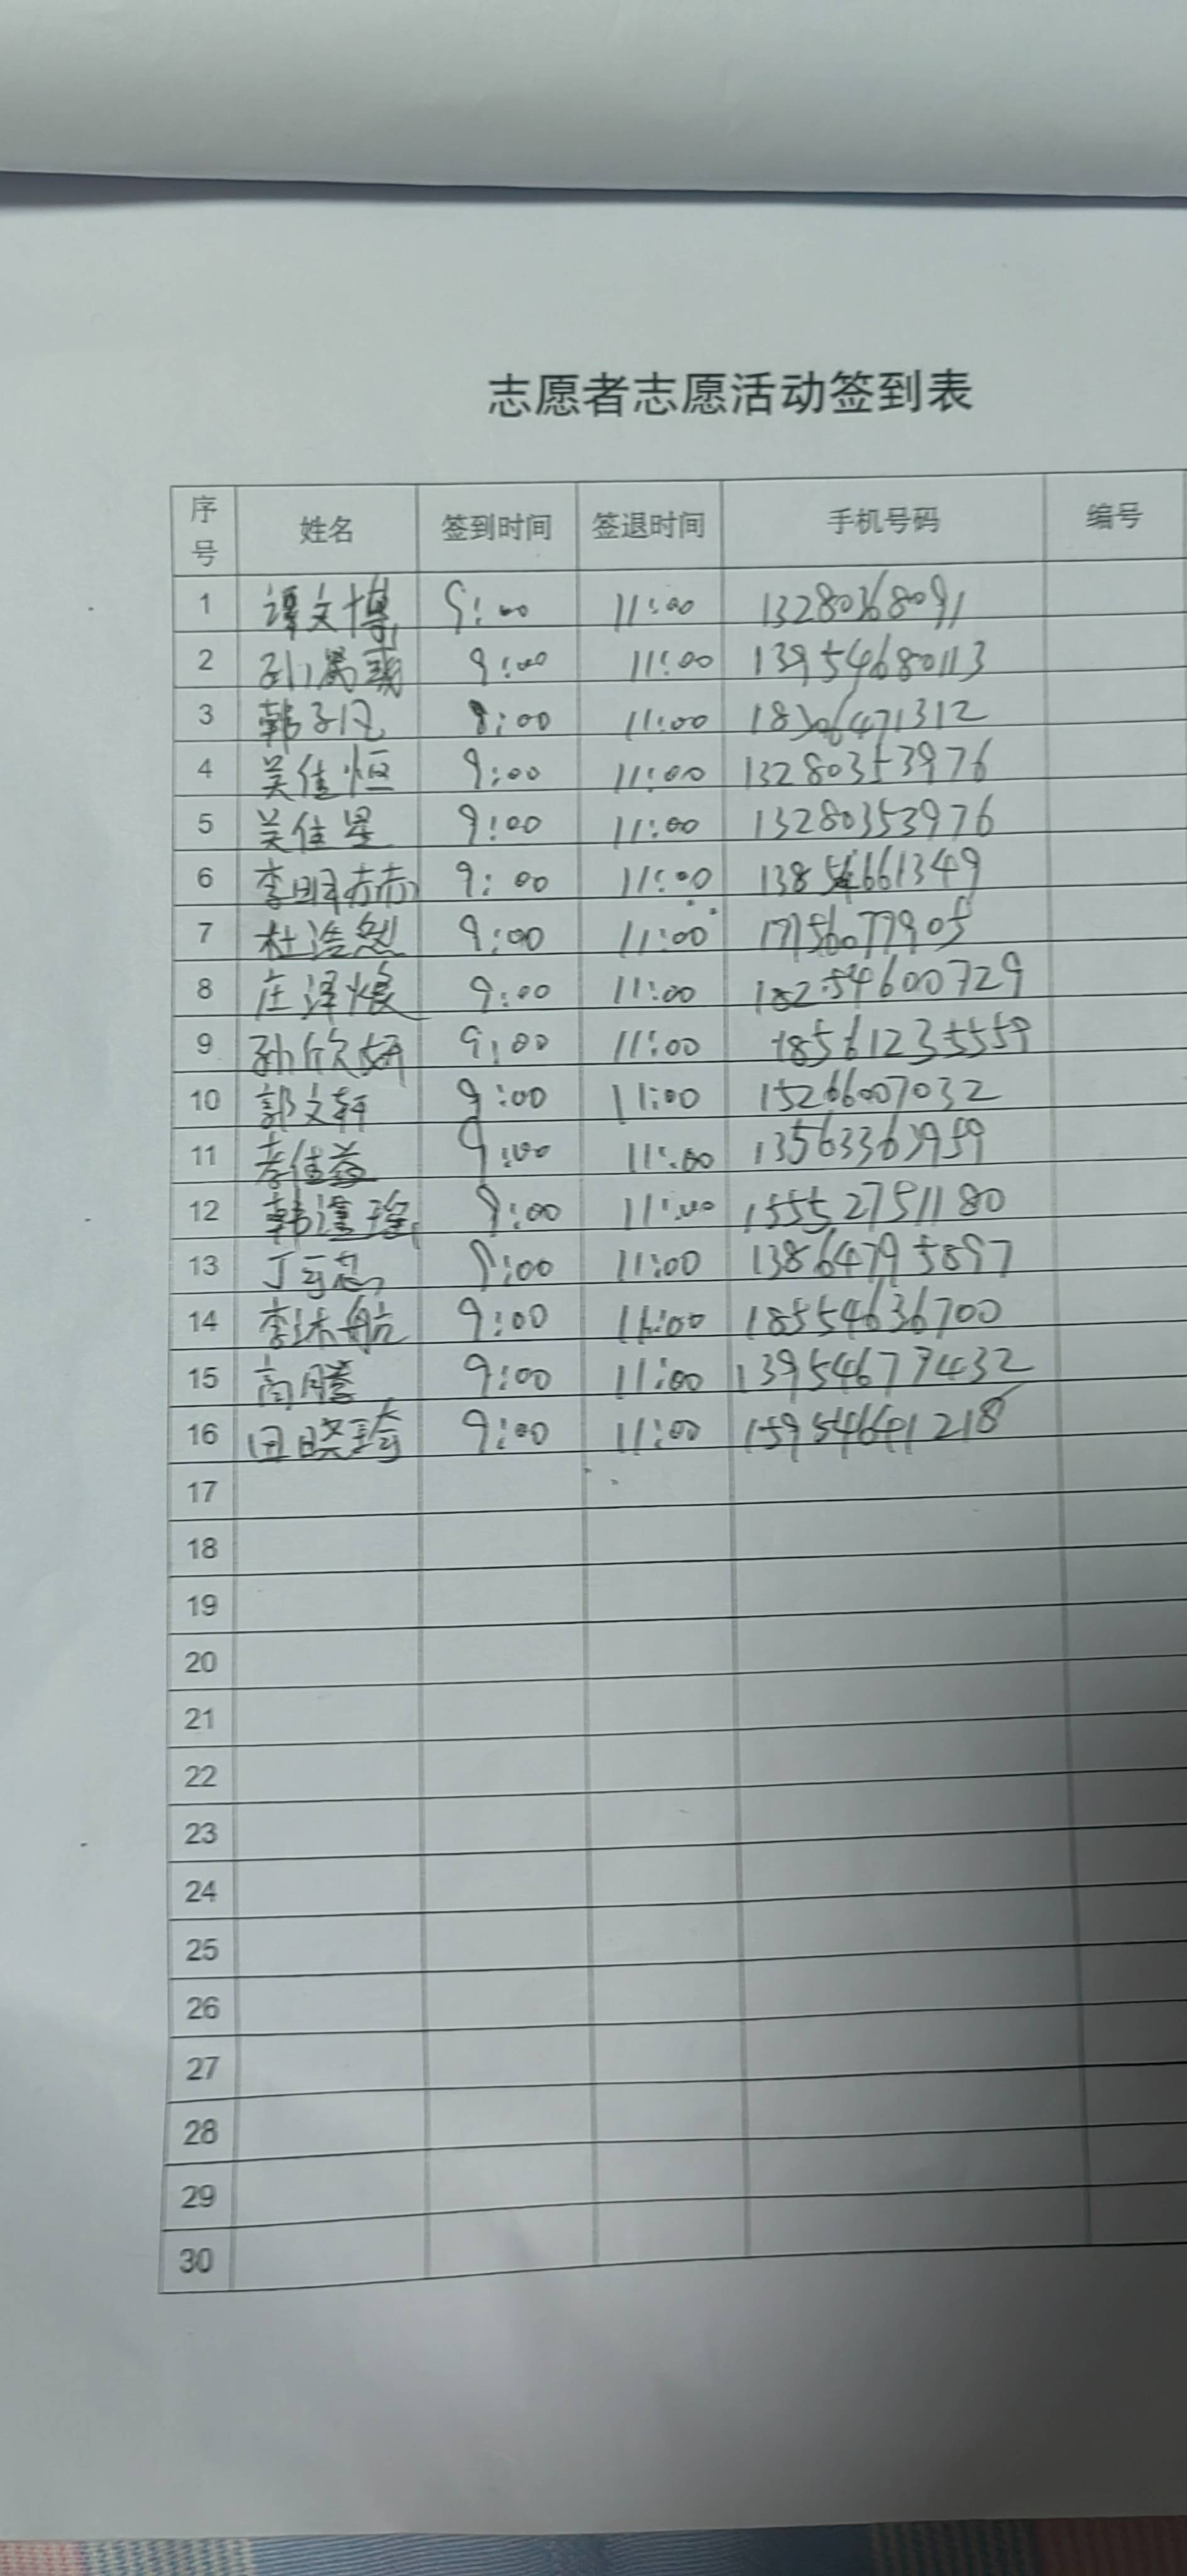 志愿者志愿活动签到表
序号 姓名 签到时间 签退时间 手机号码 编号
1 谭文博 9:00 11:00 13280368091
2 孙 9:00 11:00 13954680113
3 韩子凡 9:00 11:00 18306471312
4 吴佳恒 9:00 11:00 13280353976
5 吴佳星 9:00 11:00 13280353976
6 李明赫 9:00 11:00 13854661349
7 杜浩然 9:00 11:00 17156077905
8 庄泽煜 9:00 11:00 18254600729
9 孙欣妍 9:00 11:00 18561235559
10 郭文轩 9:00 11:00 15266007032
11 李佳益 9:00 11:00 13563363959
12 韩 9:00 11:00 15552751180
13 丁 9:00 11:00 13864795897
14 李沐航 9:00 11:00 18554636700
15 高腾 9:00 11:00 13954677432
16 田晓琦 9:00 11:00 15954641218
17
18
19
20
21
22
23
24
25
26
27
28
29
30